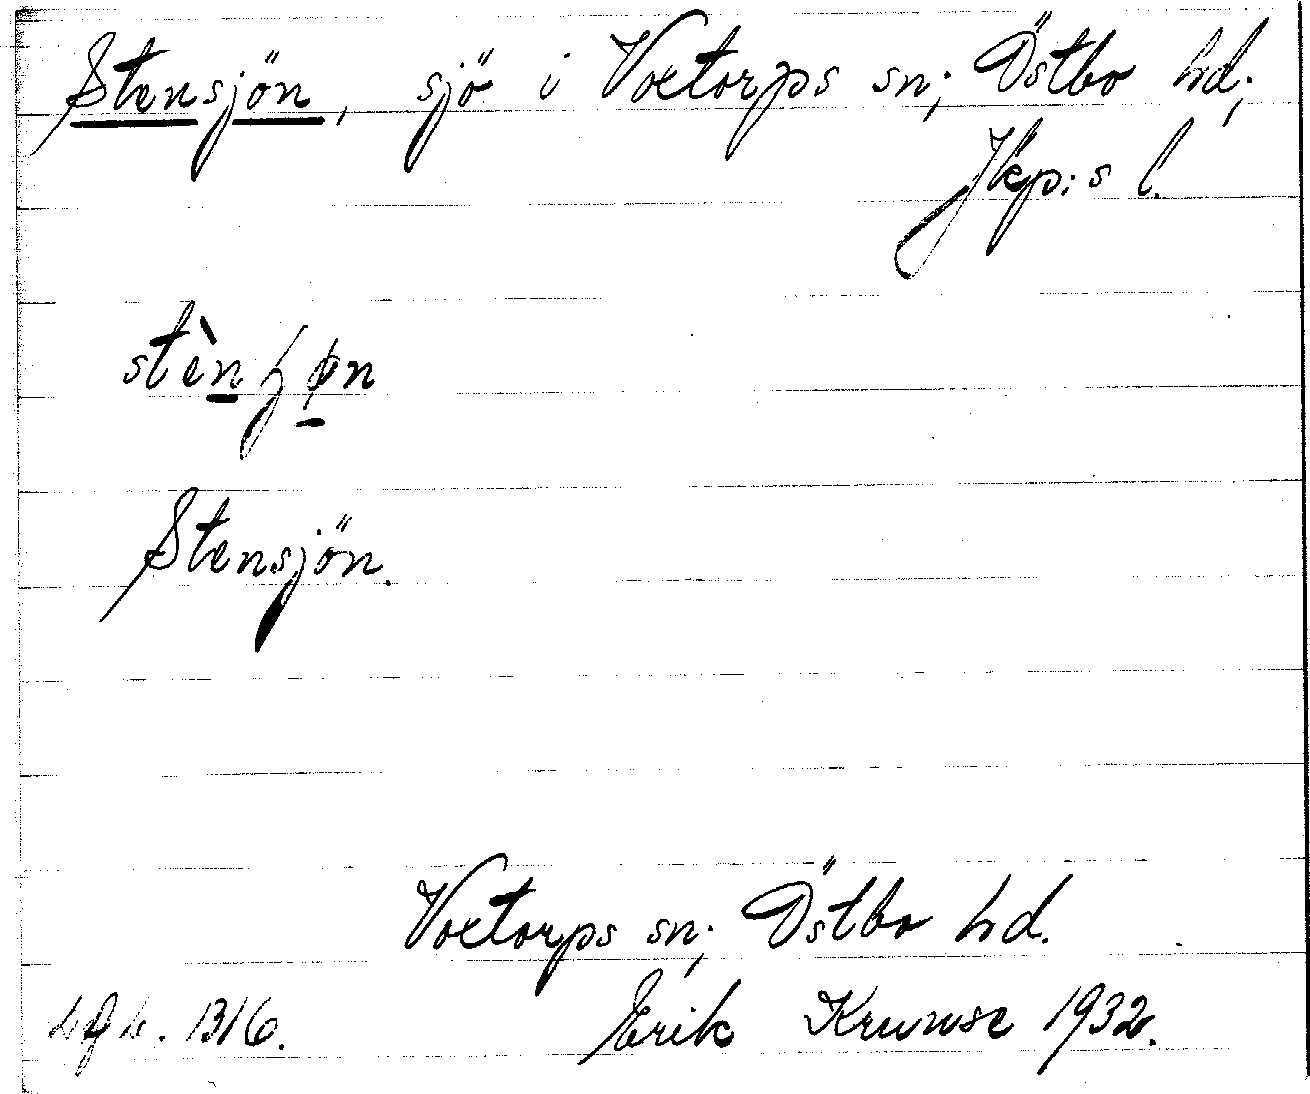 Stensjön, sjö i Voxtorps sn; Östbo hd;
Jkp:s l.
stèn ʃøn
Stensjön.
Voxtorps sn; Östbo hd.
1316. Erik 1932.